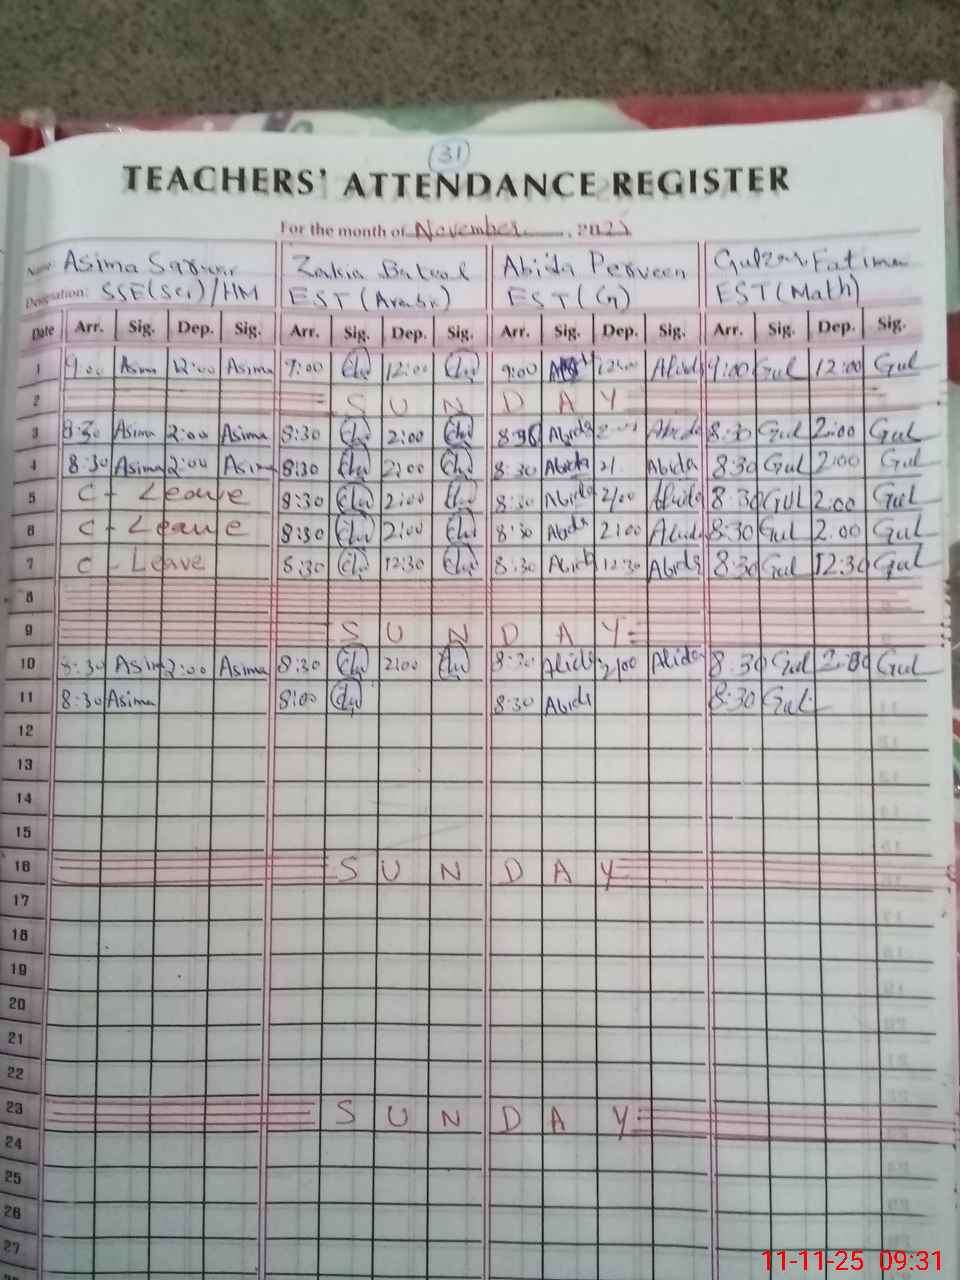 31
TEACHERS' ATTENDANCE REGISTER
For the month of November, 2025
Name: Asima Sarwar Zakia Batool Abida Perveen Gulzar Fatima
Designation: SSE(Sci)/HM EST(Arabic) EST(G) EST(Math)
Date Arr. Sig. Dep. Sig. Arr. Sig. Dep. Sig. Arr. Sig. Dep. Sig. Arr. Sig. Dep. Sig.
1 9:00 Asim 12:00 Asima 9:00 12:00 9:00 12:00 Abida 9:00 Gul 12:00 Gul
2 S U N D A Y
3 8:30 Asima 2:00 Asima 8:30 2:00 8:30 Abida Abida 8:30 Gul 2:00 Gul
4 8:30 Asima 2:00 Asima 8:30 2:00 8:30 Abida 2/ Abida 8:30 Gul 2:00 Gul
5 C - Leave 8:30 2:00 8:30 Abida 2/00 Abida 8:30 GUL 2:00 Gul
6 C - Leave 8:30 2:00 8:30 Abida 2:00 Abida 8:30 Gul 2:00 Gul
7 C - Leave 8:30 12:30 8:30 Abida 12:30 Abida 8:30 Gul 12:30 Gul
8
9 S U N D A Y
10 8:30 Asim 2:00 Asima 8:30 2:00 8:30 Abida 2/00 Abida 8:30 Gul 2:00 Gul
11 8:30 Asima 8:00 8:30 Abida 8:30 Gul
12
13
14
15
16 S U N D A Y
17
18
19
20
21
22
23 S U N D A Y
24
25
26
27
11-11-25 09:31